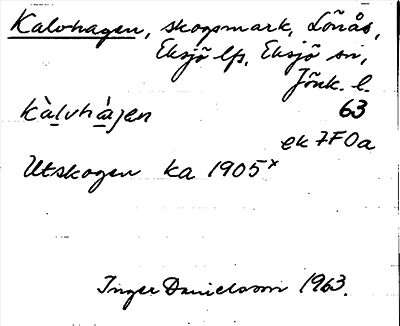 Kalvhagen, skogsmark, Lönås,
Eksjö lfs, Eksjö sn,
Jönk. l.
kàlvhà̱jen 63
ek 7F0a
Utskogen ka 1905ˣ
Inger Danielsson 1963.